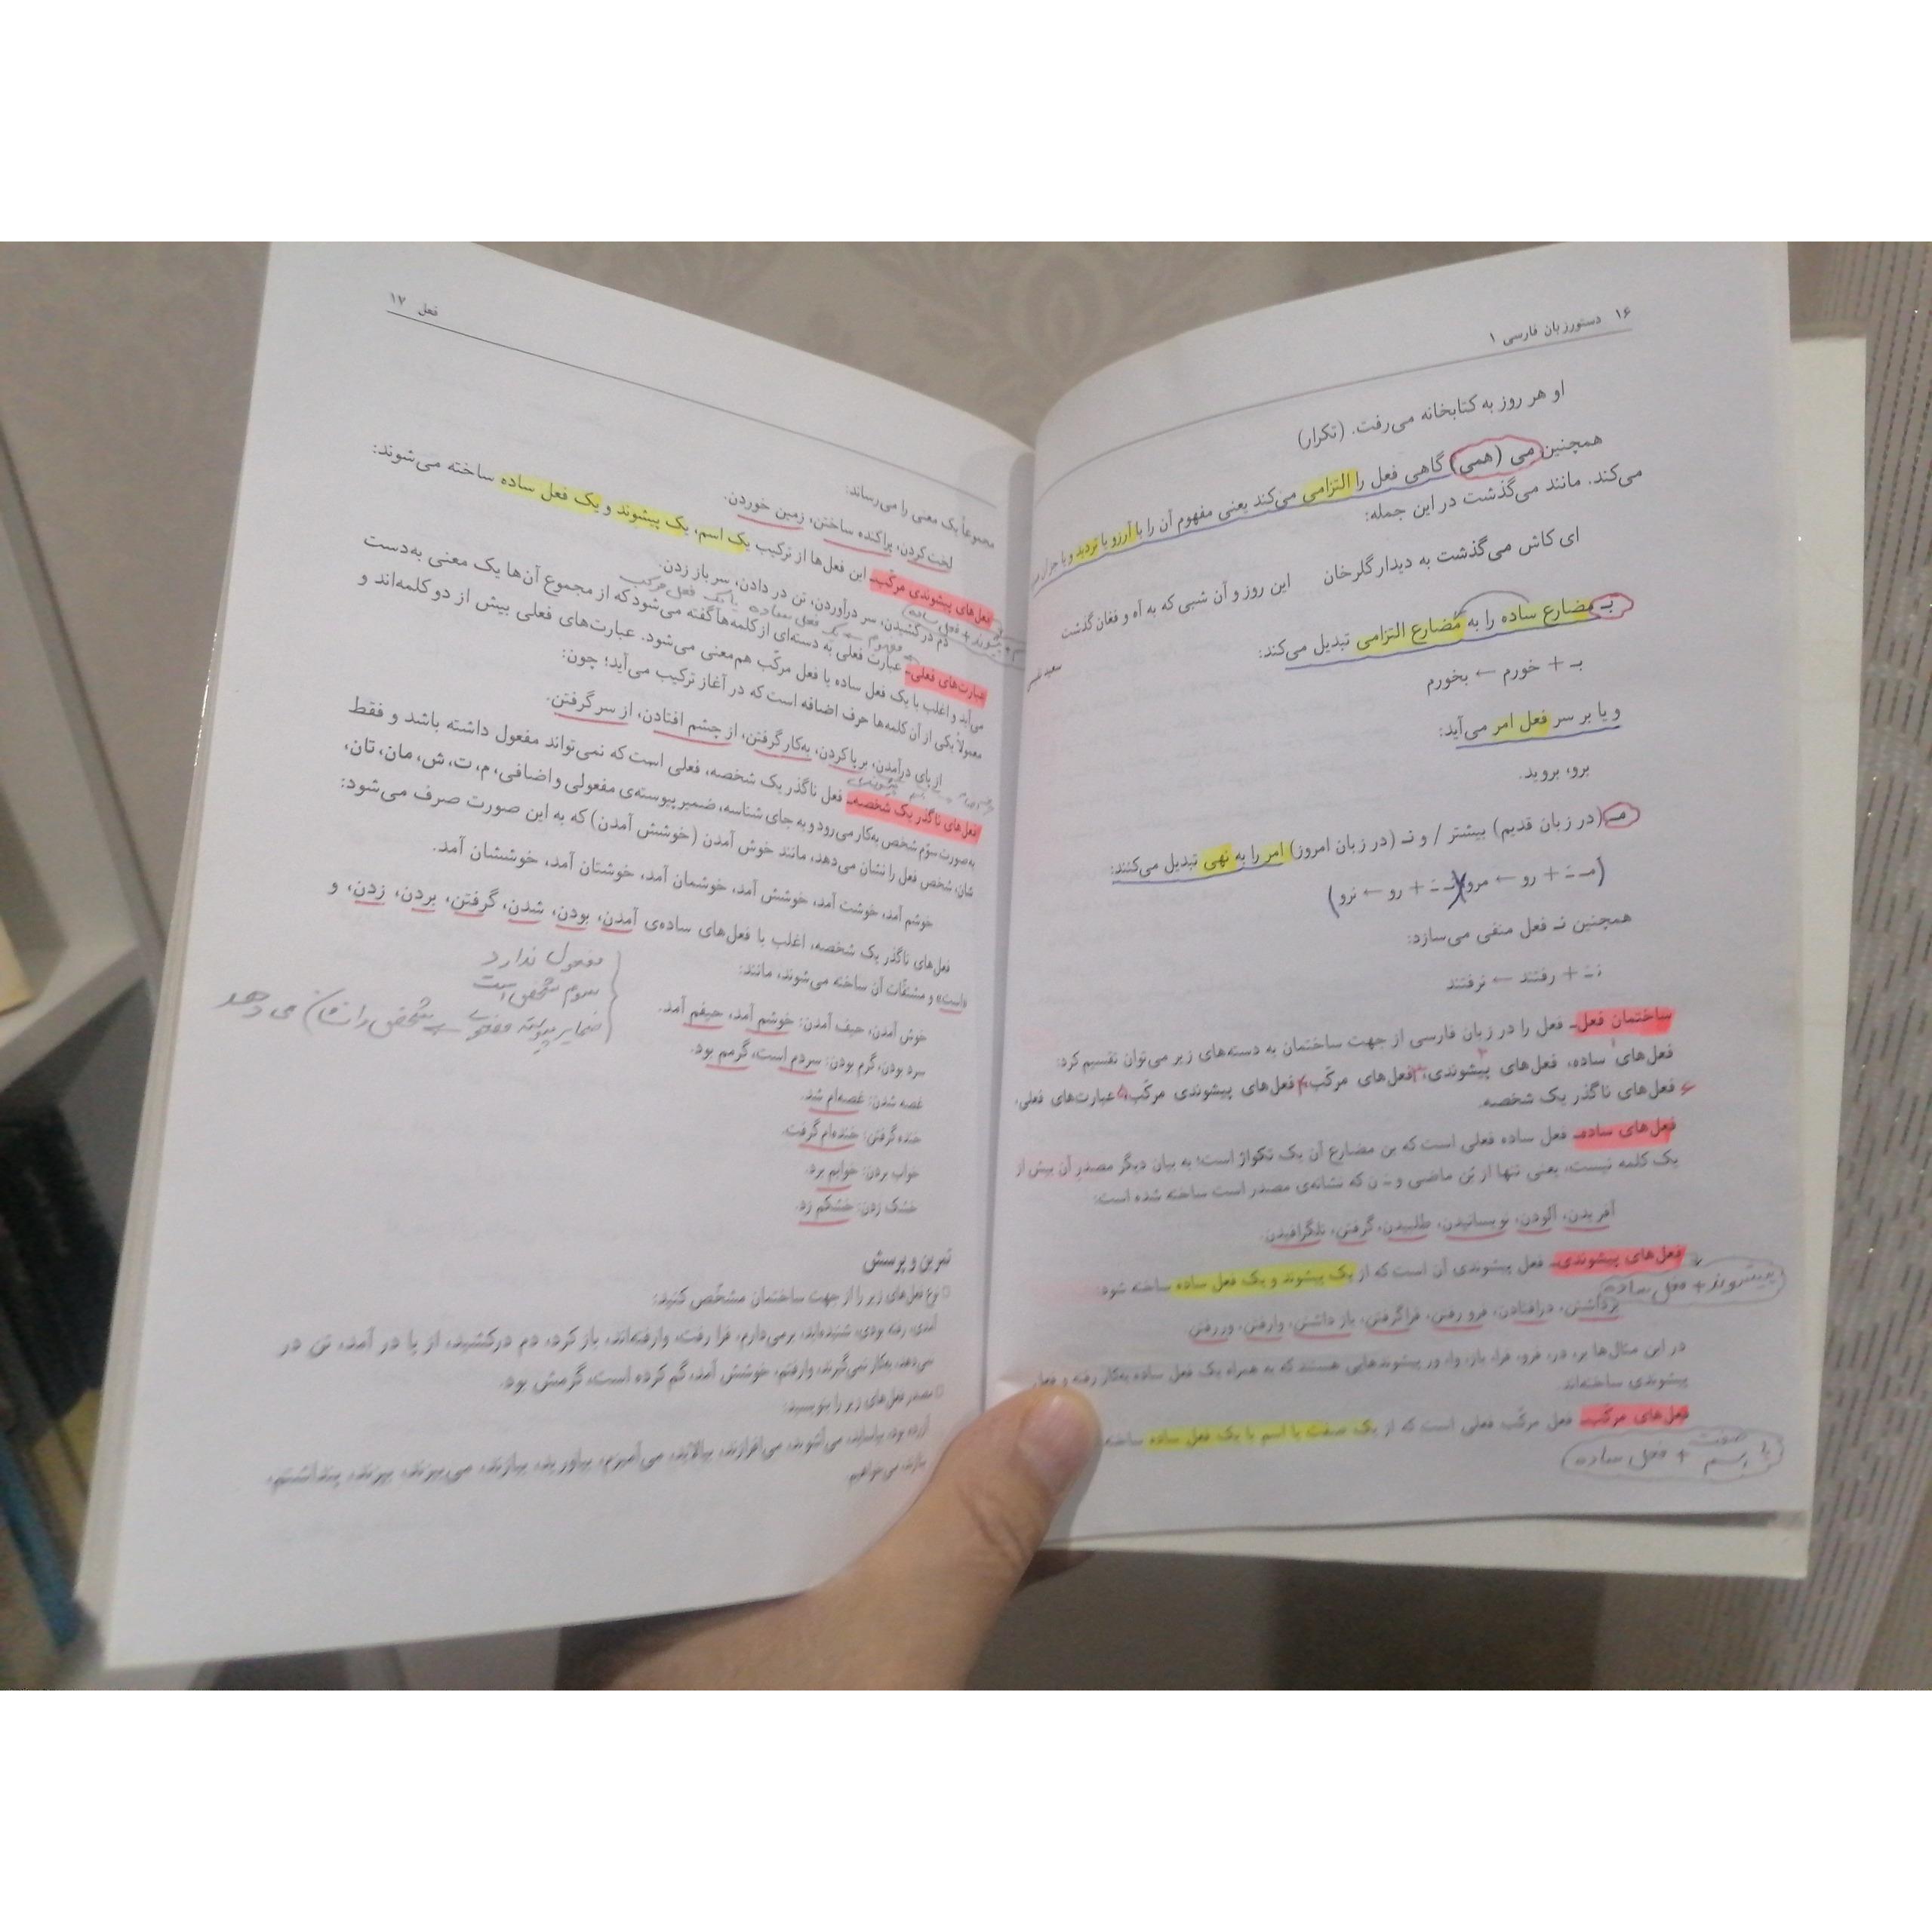 ۱۶ دستور زبان فارسی ۱
او هر روز به کتابخانه می‌رفت. (تکرار)
همچنین می (همی) گاهی فعل را التزامی می‌کند یعنی مفهوم آن را با آرزو یا تردید و یا
می‌کند. مانند می‌گذشت در این جمله:
ای کاش می‌گذشت به دیدار گلرخان این روز و آن شبی که به آه و فغان گذشت
سعید نفیسی
بـ مضارع ساده را به مضارع التزامی تبدیل می‌کند:
بـ + خورم ← بخورم
و یا بر سر فعل امر می‌آید:
برو، بروید.
مـ (در زبان قدیم) بیشتر / و نـ (در زبان امروز) امر را به نهی تبدیل می‌کنند:
(مـَ + رو ← مرو) (نـَ + رو ← نرو)
همچنین نـ فعل منفی می‌سازد:
نـَ + رفتند ← نرفتند
ساختمان فعل ـ فعل را در زبان فارسی از جهت ساختمان به دسته‌های زیر می‌توان تقسیم کرد:
فعل‌های ۱ ساده، فعل‌های ۲ پیشوندی، ۳ فعل‌های مرکّب، ۴ فعل‌های پیشوندی مرکّب، ۵ عبارت‌های فعلی،
۶ فعل‌های ناگذر یک شخصه.
فعل‌های ساده ـ فعل ساده فعلی است که بن مضارع آن یک تکواژ است؛ به بیان دیگر مصدر آن بیش از
یک کلمه نیست، یعنی تنها از بُن ماضی و ـَ ن که نشانه‌ی مصدر است ساخته شده است:
آفریدن، آلودن، نویسانیدن، طلبیدن، گرفتن، تلگرافیدن.
فعل‌های پیشوندی ـ فعل پیشوندی آن است که از یک پیشوند و یک فعل ساده ساخته شود:
پیشوند + فعل ساده
برداشتن، درافتادن، فرو رفتن، فراگرفتن، باز داشتن، وارفتن، ور رفتن
در این مثال‌ها بر، در، فرو، فرا، باز، وا، ور پیشوندهایی هستند که به همراه یک فعل ساده به‌کار رفته و فعل
پیشوندی ساخته‌اند.
فعل‌های مرکّب ـ فعل مرکّب فعلی است که از یک صفت یا اسم با یک فعل ساده ساخته
صفت یا اسم + فعل ساده
فعل ۱۷
مجموعاً یک معنی را می‌رساند:
لخت کردن، پراکنده ساختن، زمین خوردن.
فعل‌های پیشوندی مرکّب ـ این فعل‌ها از ترکیب یک اسم، یک پیشوند و یک فعل ساده ساخته می‌شوند:
اسم + پیشوند + فعل ساده
دم درکشیدن، سر درآوردن، تن در دادن، سر باز زدن.
مفهوم ← یک فعل ساده یا یک فعل مرکب
عبارت‌های فعلی ـ عبارت فعلی به دسته‌ای از کلمه‌ها گفته می‌شود که از مجموع آن‌ها یک معنی به‌دست
می‌آید و اغلب با یک فعل ساده یا فعل مرکّب هم‌معنی می‌شود. عبارت‌های فعلی بیش از دو کلمه‌اند و
معمولاً یکی از آن کلمه‌ها حرف اضافه است که در آغاز ترکیب می‌آید؛ چون:
از پای درآمدن، بر پا کردن، به‌کار گرفتن، از چشم افتادن، از سر گرفتن.
فعل‌های ناگذر یک شخصه ـ فعل ناگذر یک شخصه، فعلی است که نمی‌تواند مفعول داشته باشد و فقط
به‌صورت سوّم شخص به‌کار می‌رود و به جای شناسه، ضمیر پیوسته‌ی مفعولی و اضافی، م، ت، ش، مان، تان،
شان، شخص فعل را نشان می‌دهد، مانند خوش آمدن (خوشش آمدن) که به این صورت صرف می‌شود:
خوشم آمد، خوشت آمد، خوشش آمد، خوشمان آمد، خوشتان آمد، خوششان آمد.
فعل‌های ناگذر یک شخصه، اغلب با فعل‌های ساده‌ی آمدن، بودن، شدن، گرفتن، بردن، زدن، و
«است» و مشتقّات آن ساخته می‌شوند، مانند:
مفعول ندارد
سوم شخص است
ضمایر پیوسته مفعولی ← شخص را نشان می‌دهد
خوش آمدن، حیف آمدن: خوشم آمد، حیفم آمد.
سرد بودن، گرم بودن: سردم است، گرمم بود.
غصه شدن: غصه‌ام شد.
خنده گرفتن: خنده‌ام گرفت.
خواب بردن: خوابم برد.
خشک زدن: خشکم زد.
تمرین و پرسش
□ نوع فعل‌های زیر را از جهت ساختمان مشخّص کنید:
آمدی، رفته بودی، شنیده‌اید، برمی‌دارم، فرا رفت، وارفته‌اند، باز کرد، دم درکشید، از پا در آمد، تن در
می‌دهد، به‌کار نمی‌گیرند، وارفتم، خوشش آمد، گم کرده است، گرمش بود.
□ مصدر فعل‌های زیر را بنویسید:
آزرده بود، بیاساید، می‌آشوبد، می‌افرازند، بیالاید، می‌آمیزم، بیاورید، بیازند، می‌بیزند، بپزند، پنداشتم،
بتازند، می‌خواهیم.